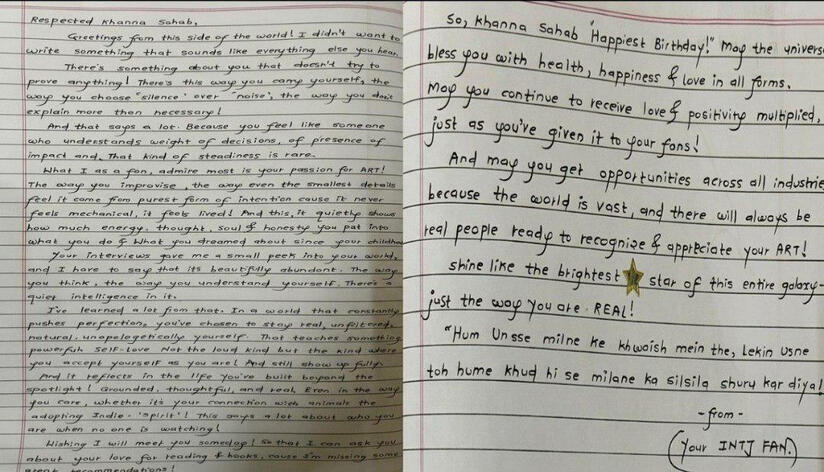 Respected Khanna Sahab,
Greetings from this side of the world! I didn't want to
write something that sounds like everything else you hear.
There's something about you that doesn't try to
prove anything! There's this way you carry yourself, the
way you choose "silence" over "noise", the way you don't
explain more than necessary!
And that says a lot. Because you feel like someone
who understands weight of decisions, of presence of
impact and, That kind of steadiness is rare.
What I as a fan, admire most is your passion for ART!
The way you improvise, the way even the smallest details
feel it come from purest form of intention cause it never
feels mechanical, it feels lived! And this, it quietly shows
how much energy, thought, soul & honesty you put into
what you do & What you dreamed about since your childhood
Your interviews gave me a small peek into your world,
and I have to say that its beautifully abundant. The way
you think, the way you understand yourself. There's a
quiet intelligence in it.
I've learned a lot from that. In a world that constantly
pushes perfection, you've chosen to stay real, unfiltered,
natural, unapologetically yourself. That teaches something
powerful Self-Love. Not the loud kind but the kind where
you accept yourself as you are! And still show up fully.
And it reflects in the life you've built beyond the
spotlight! Grounded, thoughtful, and real. Even in the way
you care, whether it's your connection with animals the
adopting Indie - 'Spirit'! This says a lot about who you
are when no one is watching!
Wishing I will meet you someday! So that I can ask you
about your love for reading & books, cause I'm missing some
great recommendations!
So, Khanna Sahab "Happiest Birthday!" May the universe
bless you with health, happiness & love in all forms.
May you continue to receive love & positivity multiplied,
just as you've given it to your fans!
And may you get opportunities across all industries
because the world is vast, and there will always be
real people ready to recognize & appreciate your ART!
shine like the brightest star of this entire galaxy-
just the way you are. REAL!
"Hum Unsse milne ke khwoish mein the, Lekin Usne
toh hume khud hi se milane ka silsila shuru kar diya!
- from -
(Your INTJ FAN.)